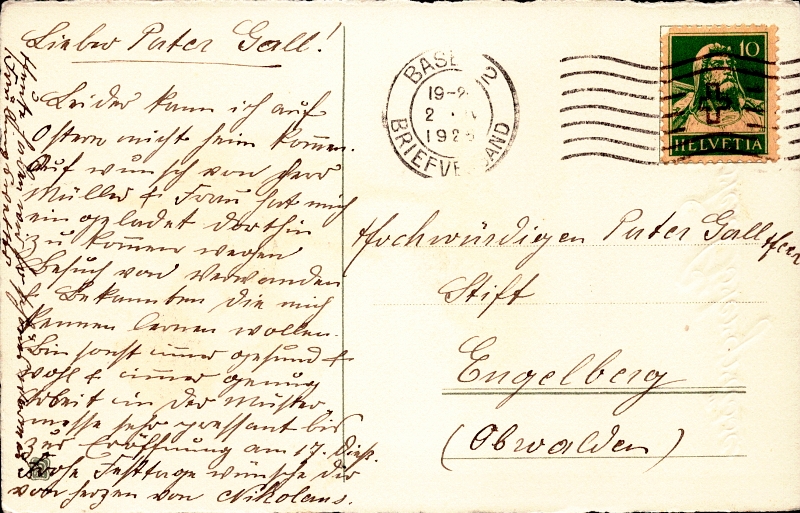 Lieber Pater Gall!
Leider kann ich auf
Ostern nicht heim kommen.
Auf wunsch von Herr
Müller & Frau hat mich
ein geladet dorthin
zu kommen wegen
Besuch von Verwanden
& Bekannten die mich
kennen lernen wollen.
Bin sonst immer gesund &
wohl & immer genug
Arbeit in der Muster
messe sehr pressant bis
zur Eröffnung am 17. dies.
Frohe Festtage wünsche dir
von herzen von Nikolaus.
BASEL 2
19-2
2
192
BRIEFVERSAND
10
HELVETIA
Hochwürdigen Pater Gall Heer
Stift
Engelberg
(Obwalden)